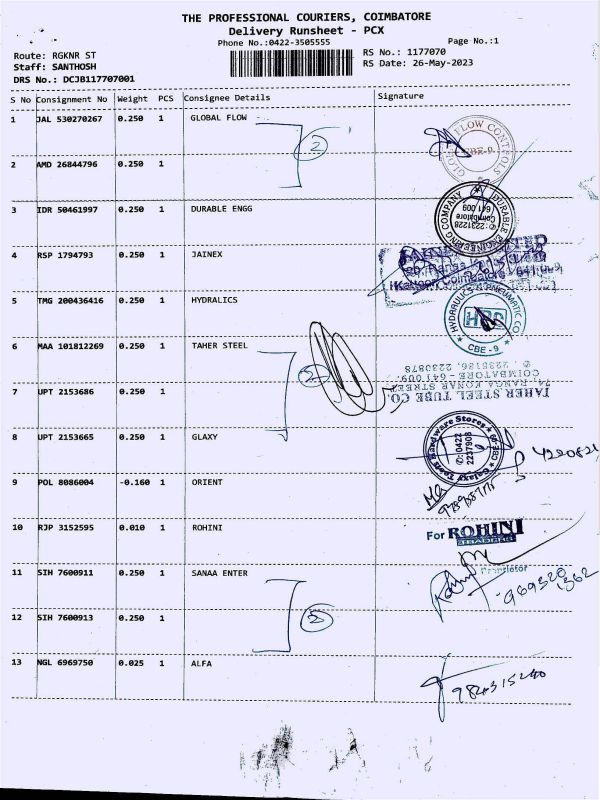 THE PROFESSIONAL COURIERS, COIMBATORE
Delivery Runsheet - PCX
Phone No.:0422-3505555
Page No.:1
Route: RGKNR ST
RS No.: 1177070
Staff: SANTHOSH
RS Date: 26-May-2023
DRS No.: DCJB117707001
S No Consignment No Weight PCS Consignee Details Signature
1 JAL 530270267 0.250 1 GLOBAL FLOW
2
GLOBAL FLOW CONTROLS
CBE-9
2 AMD 26844796 0.250 1
3 IDR 50461997 0.250 1 DURABLE ENGG
DURABLE ENGINEERING COMPANY
Coimbatore
641 009
2231228
4 RSP 1794793 0.250 1 JAINEX
5 TMG 200436416 0.250 1 HYDRALICS
HYDRAULIC & PNEUMATIC CO
CBE - 9
6 MAA 101812269 0.250 1 TAHER STEEL
2
TAHER STEEL TUBE CO.
RANGA KONAR STREET
COIMBATORE - 641 009
2235186, 2230878
7 UPT 2153686 0.250 1
8 UPT 2153665 0.250 1 GLAXY
Galaxy Tools Hardware Stores
CBE-09
0422
2237908
9 POL 8086004 -0.160 1 ORIENT
10 RJP 3152595 0.010 1 ROHINI
For ROHINI
Proprietor
11 SIH 7600911 0.250 1 SANAA ENTER
12 SIH 7600913 0.250 1
13 NGL 6969750 0.025 1 ALFA